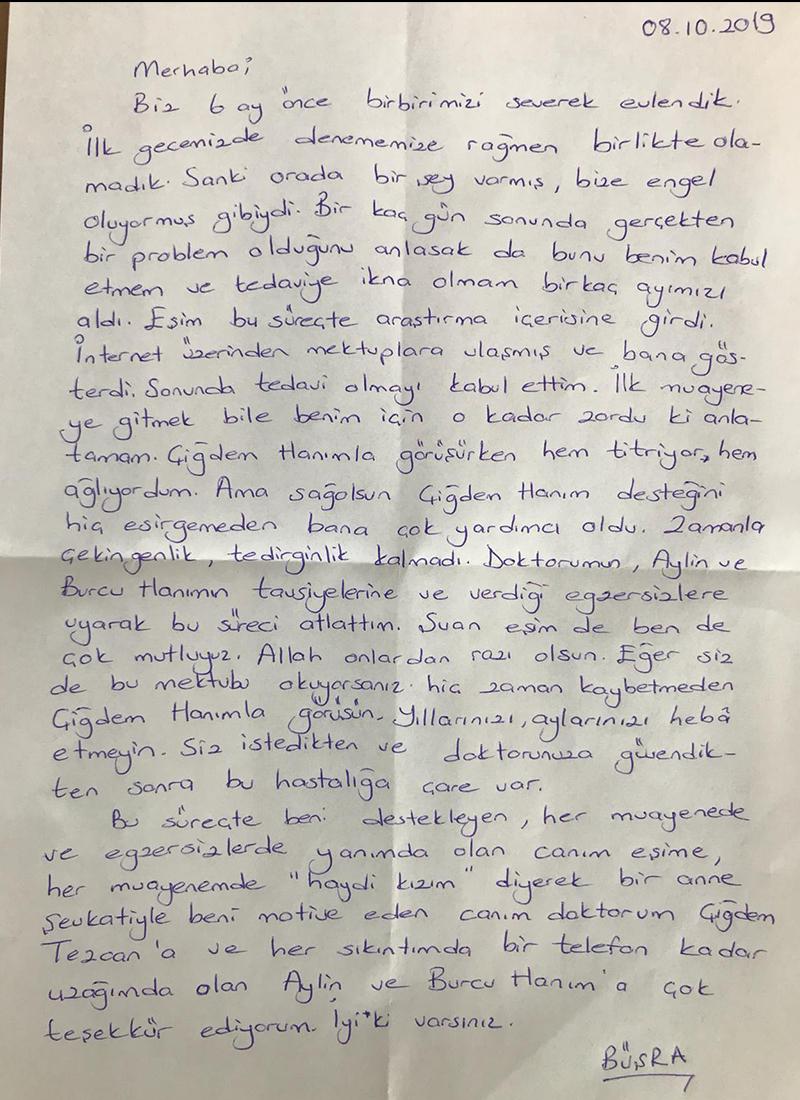 08.10.2019
Merhaba;
Biz 6 ay önce birbirimizi severek evlendik.
İlk gecemizde denememize rağmen birlikte ola-
madık. Sanki orada bir şey varmış, bize engel
oluyormuş gibiydi. Bir kaç gün sonunda gerçekten
bir problem olduğunu anlasak da bunu benim kabul
etmem ve tedaviye ikna olmam birkaç ayımızı
aldı. Eşim bu süreçte araştırma içerisine girdi.
İnternet üzerinden mektuplara ulaşmış ve bana gös-
terdi. Sonunda tedavi olmayı kabul ettim. İlk muayene-
ye gitmek bile benim için o kadar zordu ki anla-
tamam. Çiğdem Hanımla görüşürken hem titriyor, hem
ağlıyordum. Ama sağolsun Çiğdem Hanım desteğini
hiç esirgemeden bana çok yardımcı oldu. Zamanla
çekingenlik, tedirginlik kalmadı. Doktorumun, Aylin ve
Burcu Hanımın tavsiyelerine ve verdiği egzersizlere
uyarak bu süreci atlattım. Şuan eşim de ben de
çok mutluyuz. Allah onlardan razı olsun. Eğer siz
de bu mektubu okuyorsanız hiç zaman kaybetmeden
Çiğdem Hanımla görüşün. Yıllarınızı, aylarınızı hebâ
etmeyin. Siz istedikten ve doktorunuza güvendik-
ten sonra bu hastalığa çare var.
Bu süreçte beni destekleyen, her muayenede
ve egzersizlerde yanımda olan canım eşime,
her muayenemde "haydi kızım" diyerek bir anne
şevkatiyle beni motive eden canım doktorum Çiğdem
Tezcan'a ve her sıkıntımda bir telefon kadar
uzağımda olan Aylin ve Burcu Hanım'a çok
teşekkür ediyorum. İyi'ki varsınız.
BÜŞRA